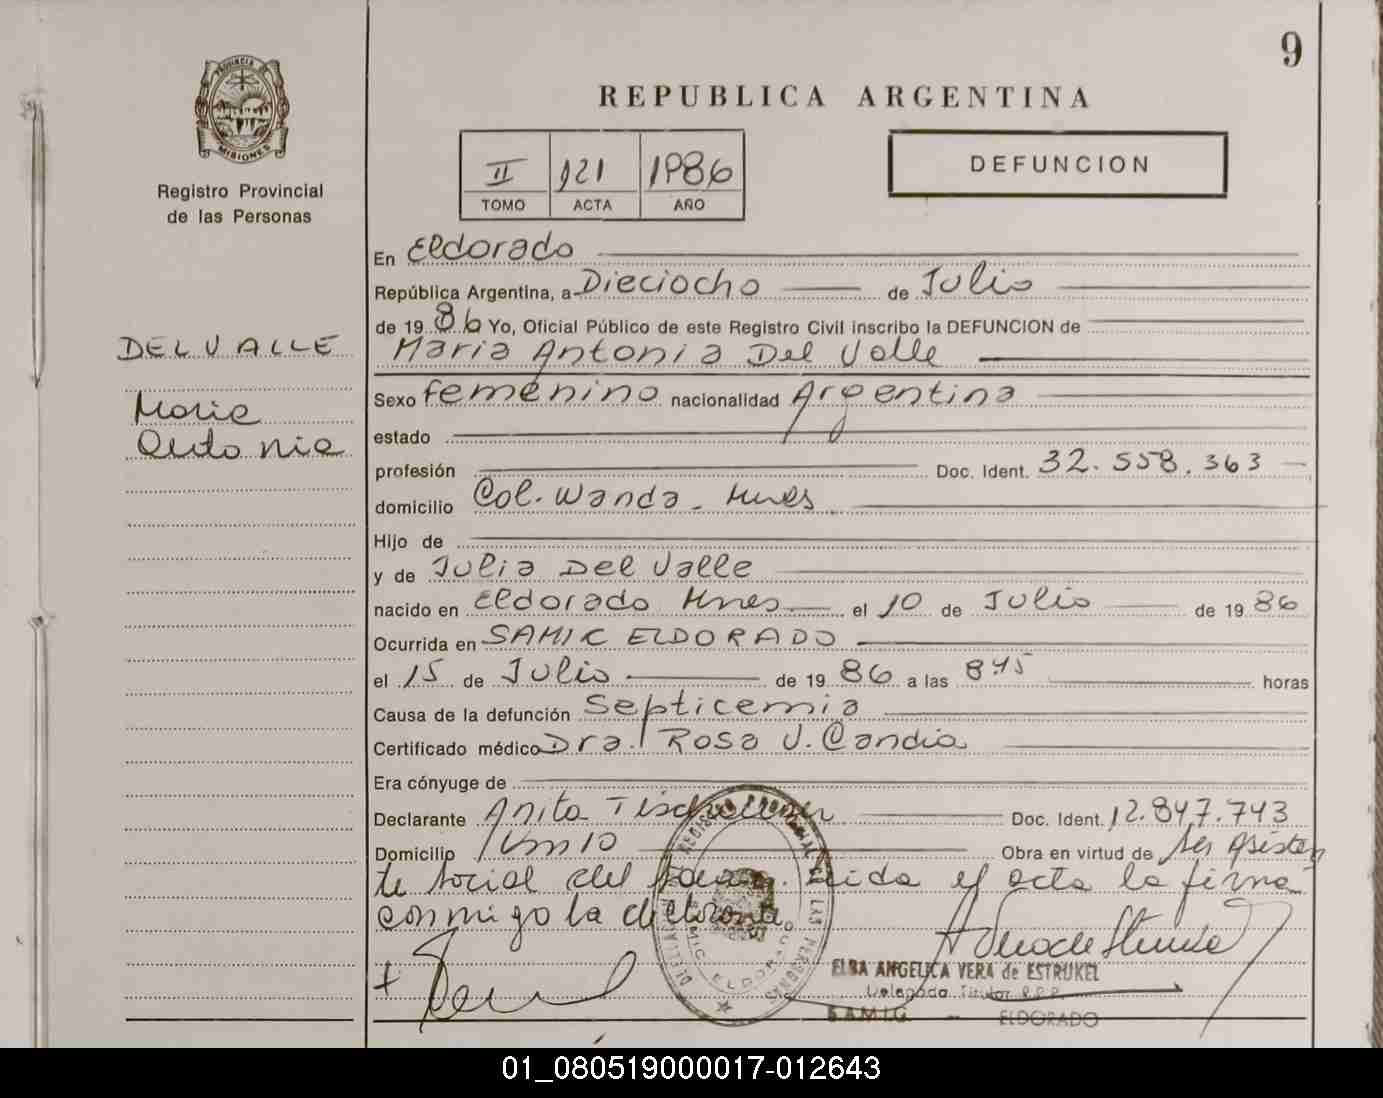 9
REPUBLICA ARGENTINA
PROVINCIA DE
MISIONES
Registro Provincial
de las Personas
II 121 1986
TOMO ACTA AÑO
DEFUNCION
DEL VALLE
Maria
Antonia
En Eldorado
República Argentina, a Dieciocho de Julio
de 1986 Yo, Oficial Público de este Registro Civil inscribo la DEFUNCION de
Maria Antonia Del Valle
Sexo femenino nacionalidad Argentina
estado
profesión Doc. Ident. 32.558.363
domicilio Col. Wanda - Mnes
Hijo de
y de Julia Del Valle
nacido en Eldorado Mnes el 10 de Julio de 1986
Ocurrida en SAMIC ELDORADO
el 15 de Julio de 1986 a las 8.45 horas
Causa de la defunción Septicemia
Certificado médico Dra. Rosa V. Candia
Era cónyuge de
Declarante Anita Doc. Ident. 12.847.743
Domicilio Km 10 Obra en virtud de ser Asisten
te social del leida el acta la firma
conmigo la declarante
ELBA ANGELICA VERA de ESTRUKEL
Delegada Titular R.P.P.
SAMIC - ELDORADO
01_080519000017-012643